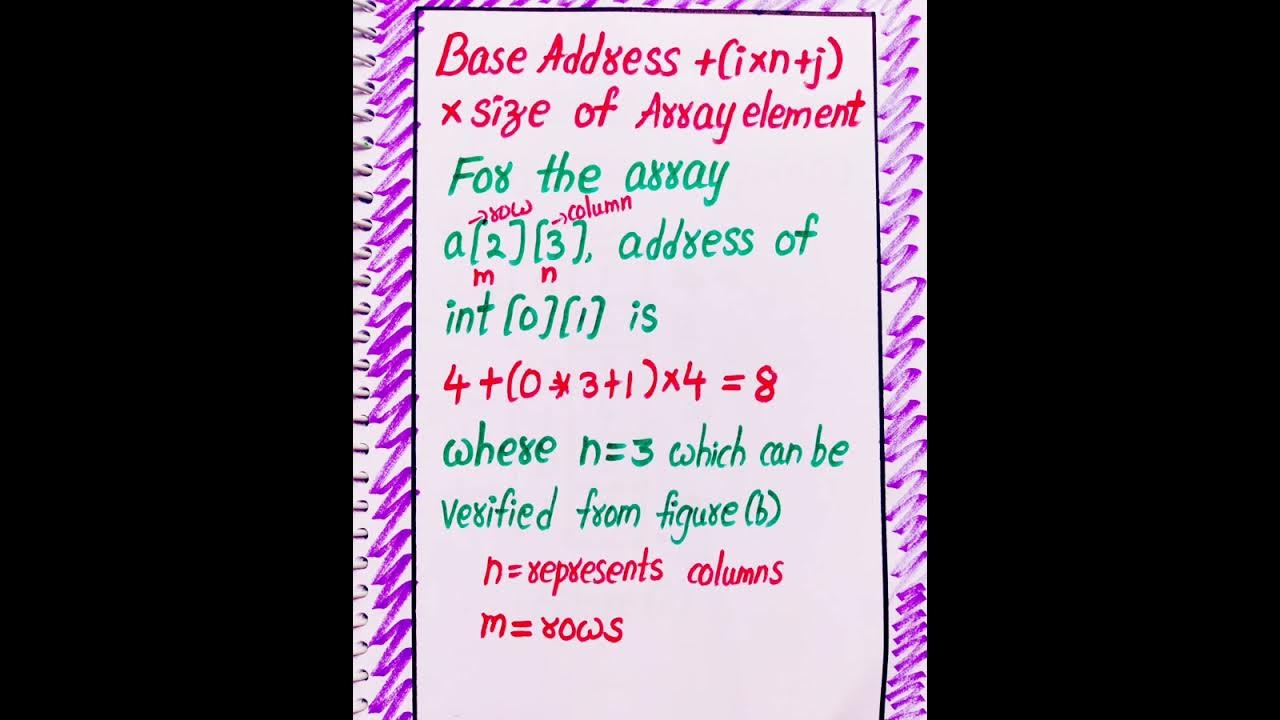 Base Address +(i×n+j)
× size of Array element
For the array
→row →column
a[2][3], address of
m n
int [0][1] is
4+(0*3+1)×4 = 8
where n=3 which can be
verified from figure(b)
n=represents columns
m=rows